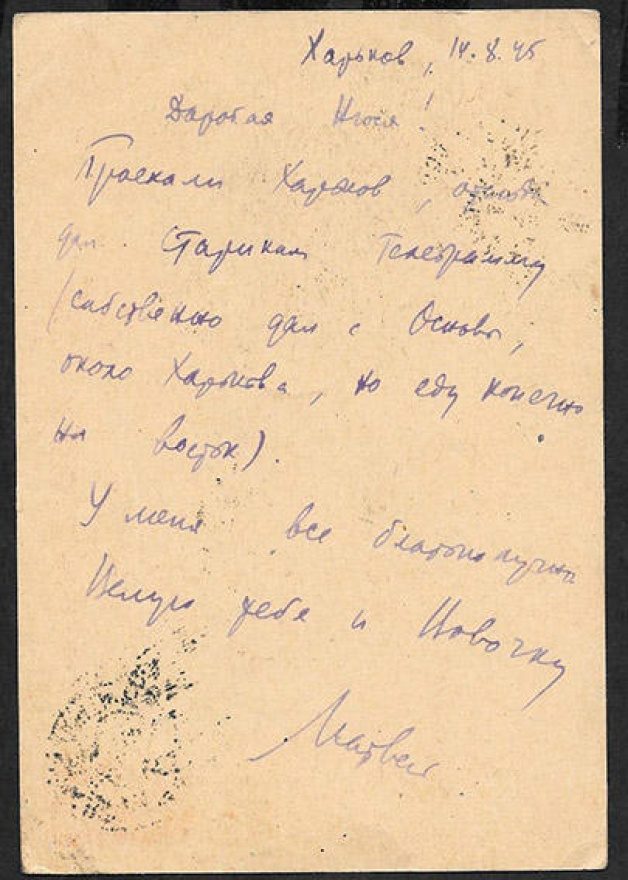 Харьков, 14.8.45
Дорогая Нюся!
Проехали Харьков,
дал Старикам телеграмму
(собственно дал с Основы,
около Харькова, но еду конечно
на восток).
У меня все благополучно
Целую тебя и Новочку
Матвей